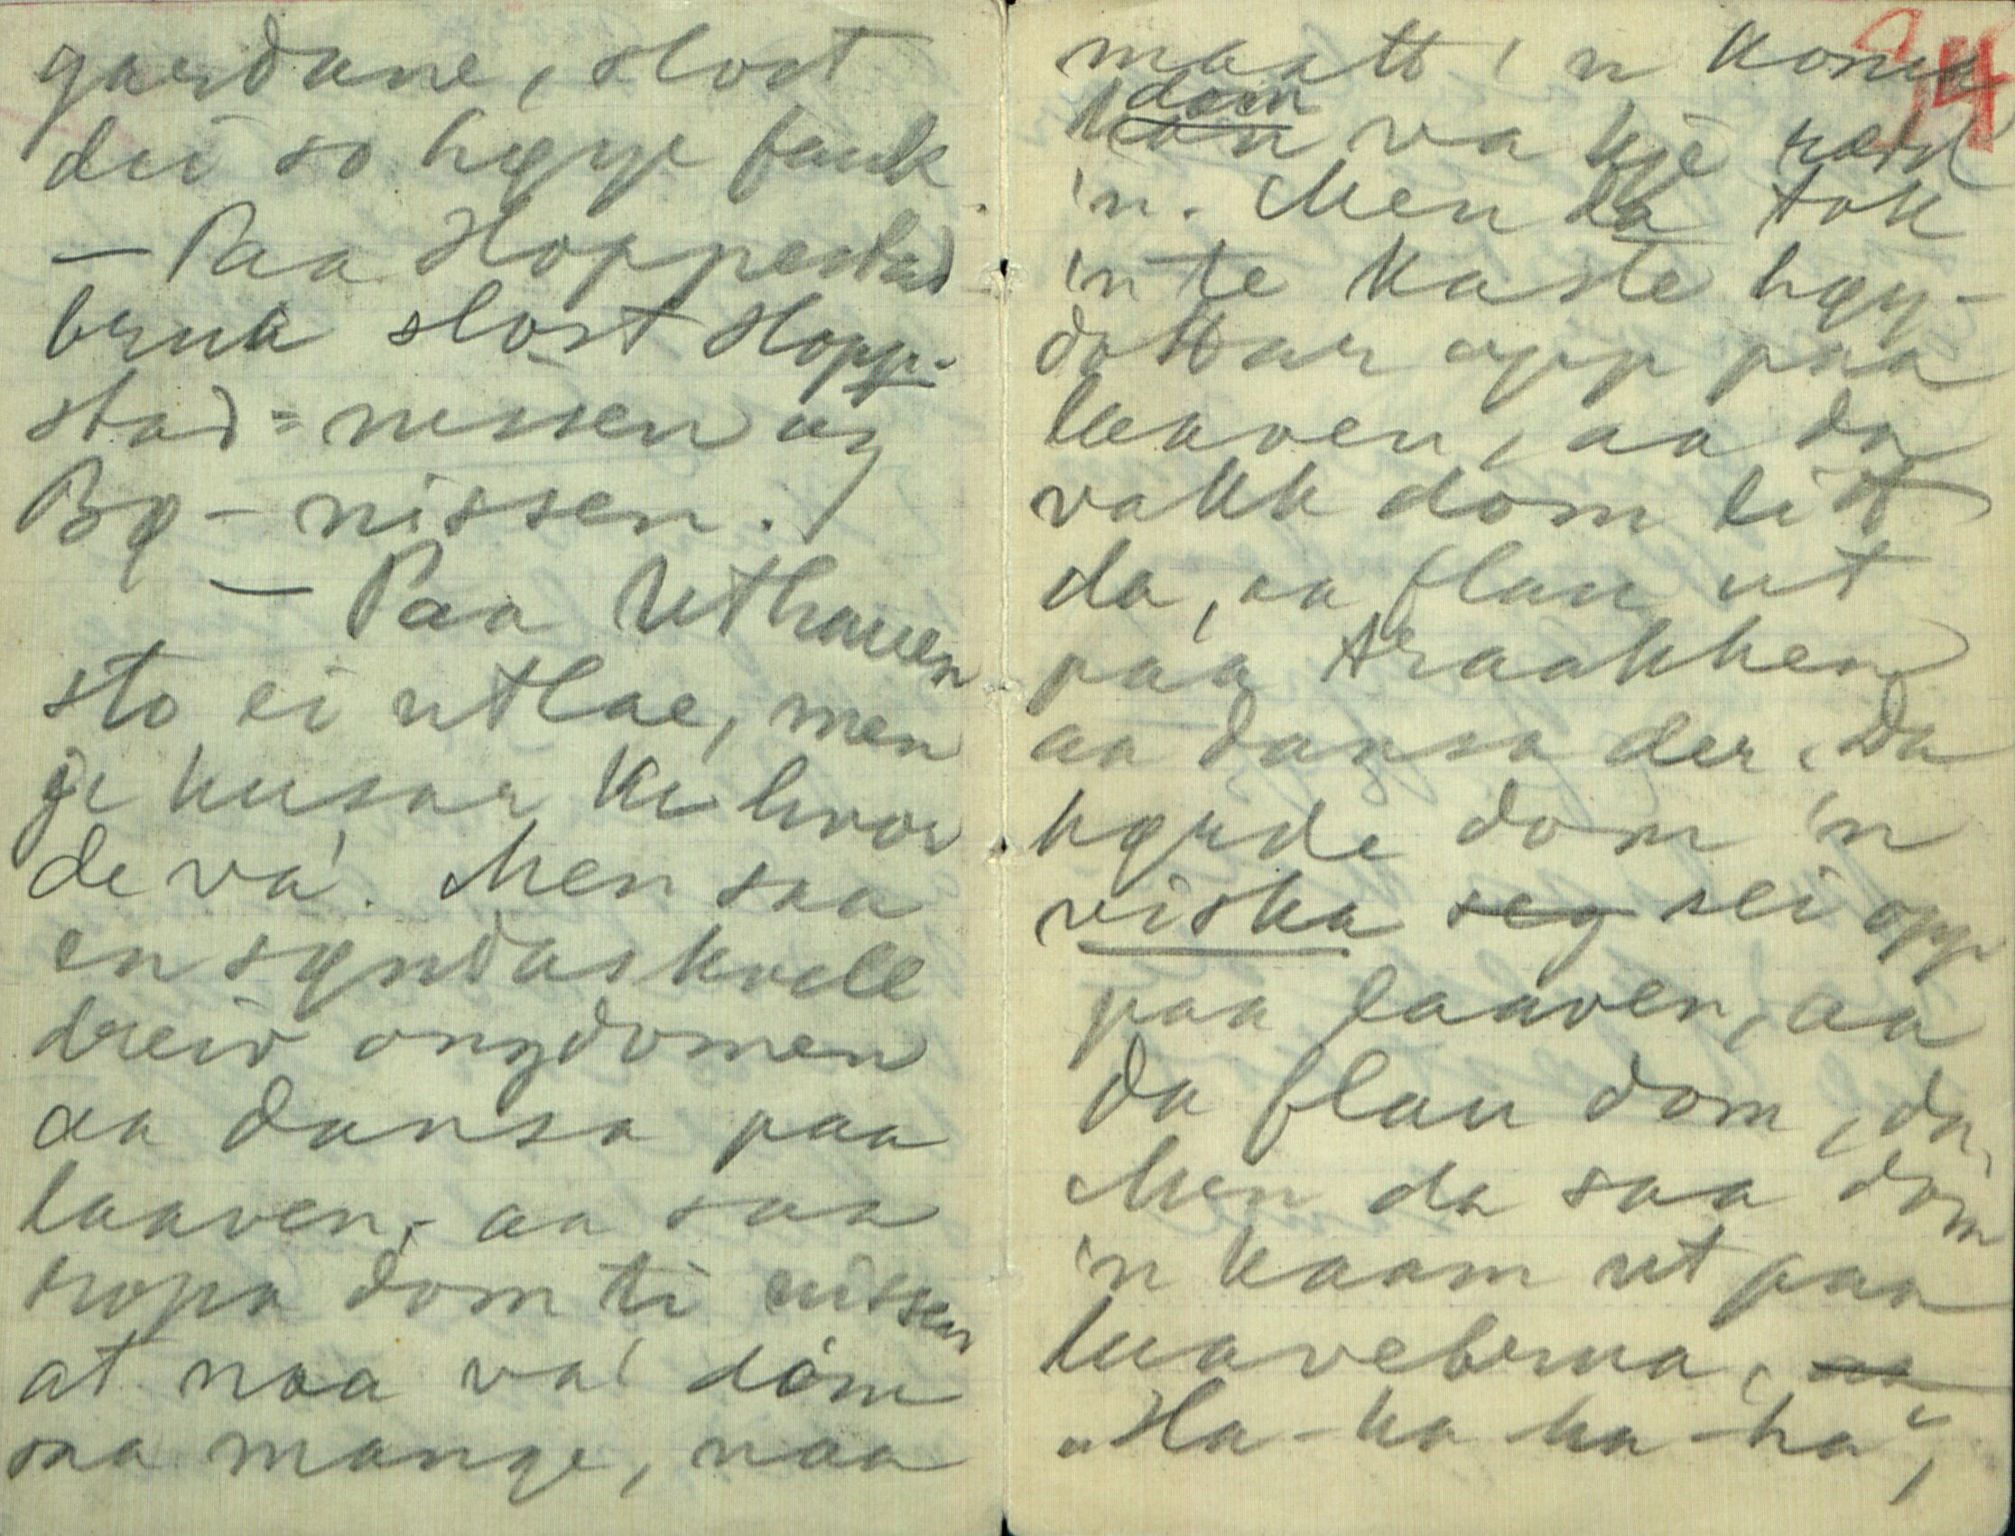 gardane, slost
dei so høye fauk
— Paa Hoppestad
bruk slost Hopp-
stad-nissen og
Bø-nissen.
— Paa Uthauen
sto ei utlae, men
je husar ke hvor
de va'. Men saa
en søndaskvell
dreiv ongdomen
aa dansa paa
laaven, aa saa
ropa dom ti nissen
at naa va' dom
saa mange, naa
34
maatt 'n koma
dom
han va kje rædd
'n. Men da tok
'n te kaste høy-
dottar opp paa
laaven, aa da
vakk dom litt
da, aa flau ut
paa traakken
aa dansa der. Da
hørde dom 'n
viska seg sei opp
paa laaven, aa
da flau dom, da.
Men da saa dom
'n kaam ut paa
laavebrua, aa
„Ha-ha-ha-ha",